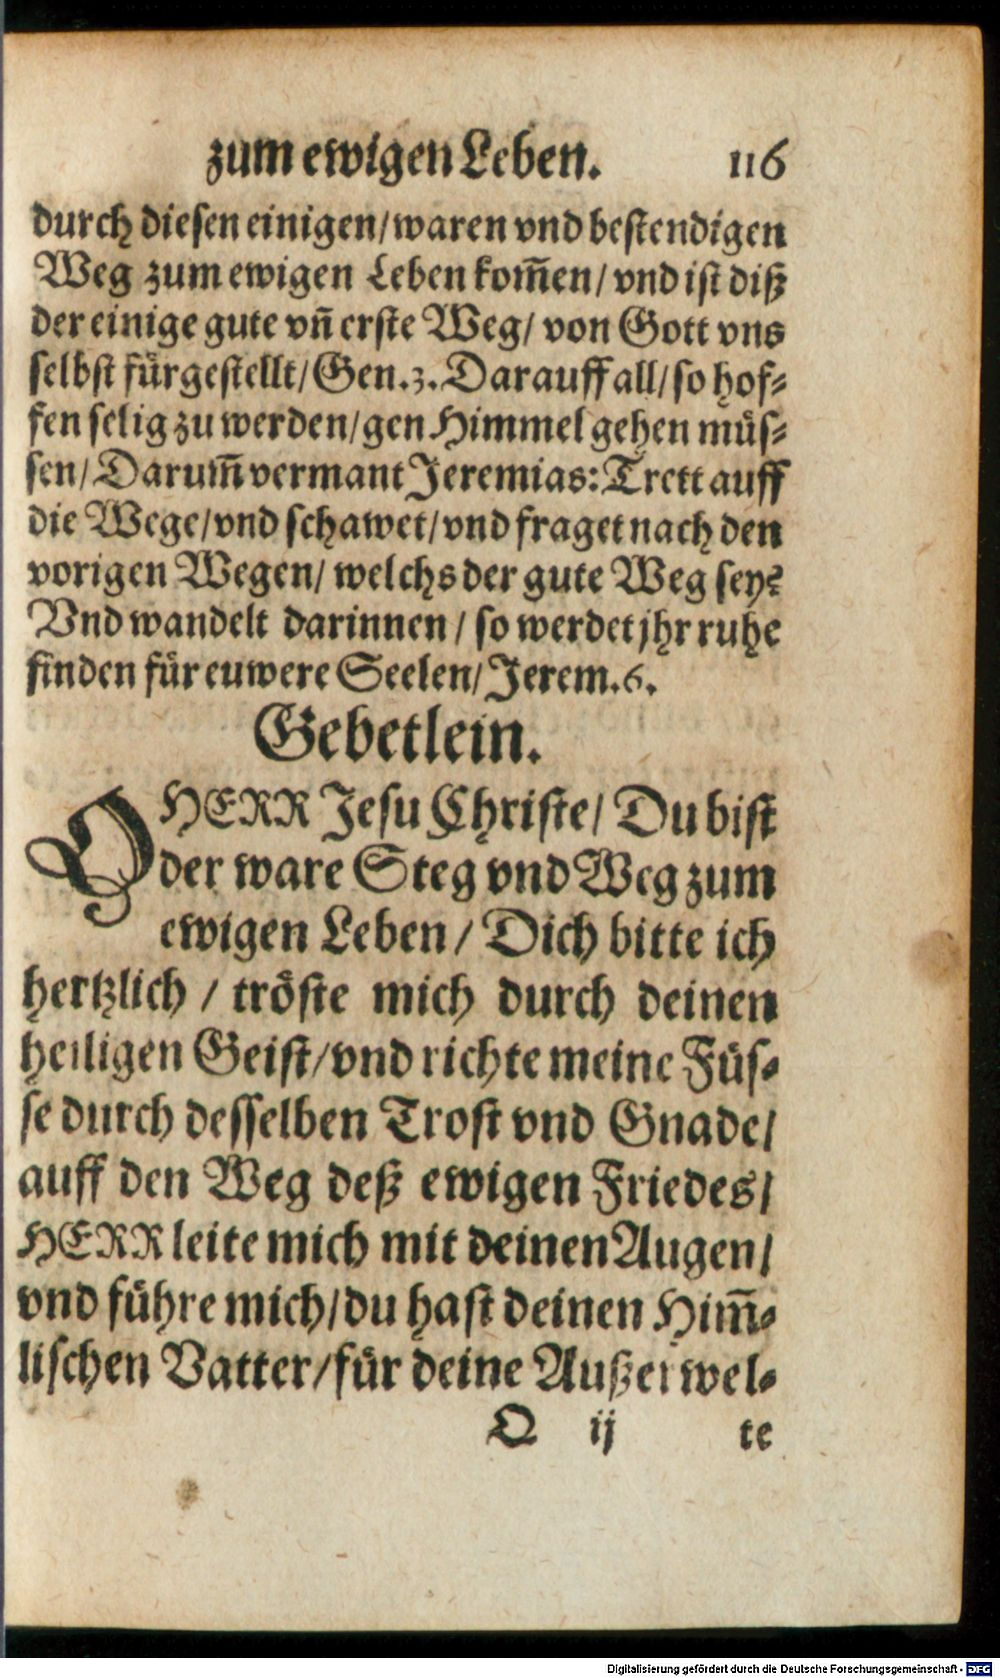 zum ewigen Leben. 116
durch diesen einigen/waren vnd bestendigen
Weg zum ewigen Leben kom̃en/ vnd ist diß
der einige gute vñ erste Weg/ von Gott vns
selbst fürgestellt/ Gen.3. Darauff all/ so hof-
fen selig zu werden/ gen Himmel gehen müs-
sen/ Darum̃ vermant Jeremias: Trett auff
die Wege/vnd schawet/vnd fraget nach den
vorigen Wegen/ welchs der gute Weg sey?
Vnd wandelt darinnen / so werdet jhr ruhe
finden für euwere Seelen/ Jerem.6.
Gebetlein.
O HERR Jesu Christe/ Du bist
der ware Steg vnd Weg zum
ewigen Leben / Dich bitte ich
hertzlich / tröste mich durch deinen
heiligen Geist/vnd richte meine Füs-
se durch desselben Trost vnd Gnade/
auff den Weg deß ewigen Friedes/
HERR leite mich mit deinen Augen/
vnd führe mich/du hast deinen Him̃-
lischen Vatter/für deine Außerwel-
O ij te
Digitalisierung gefördert durch die Deutsche Forschungsgemeinschaft - DFG